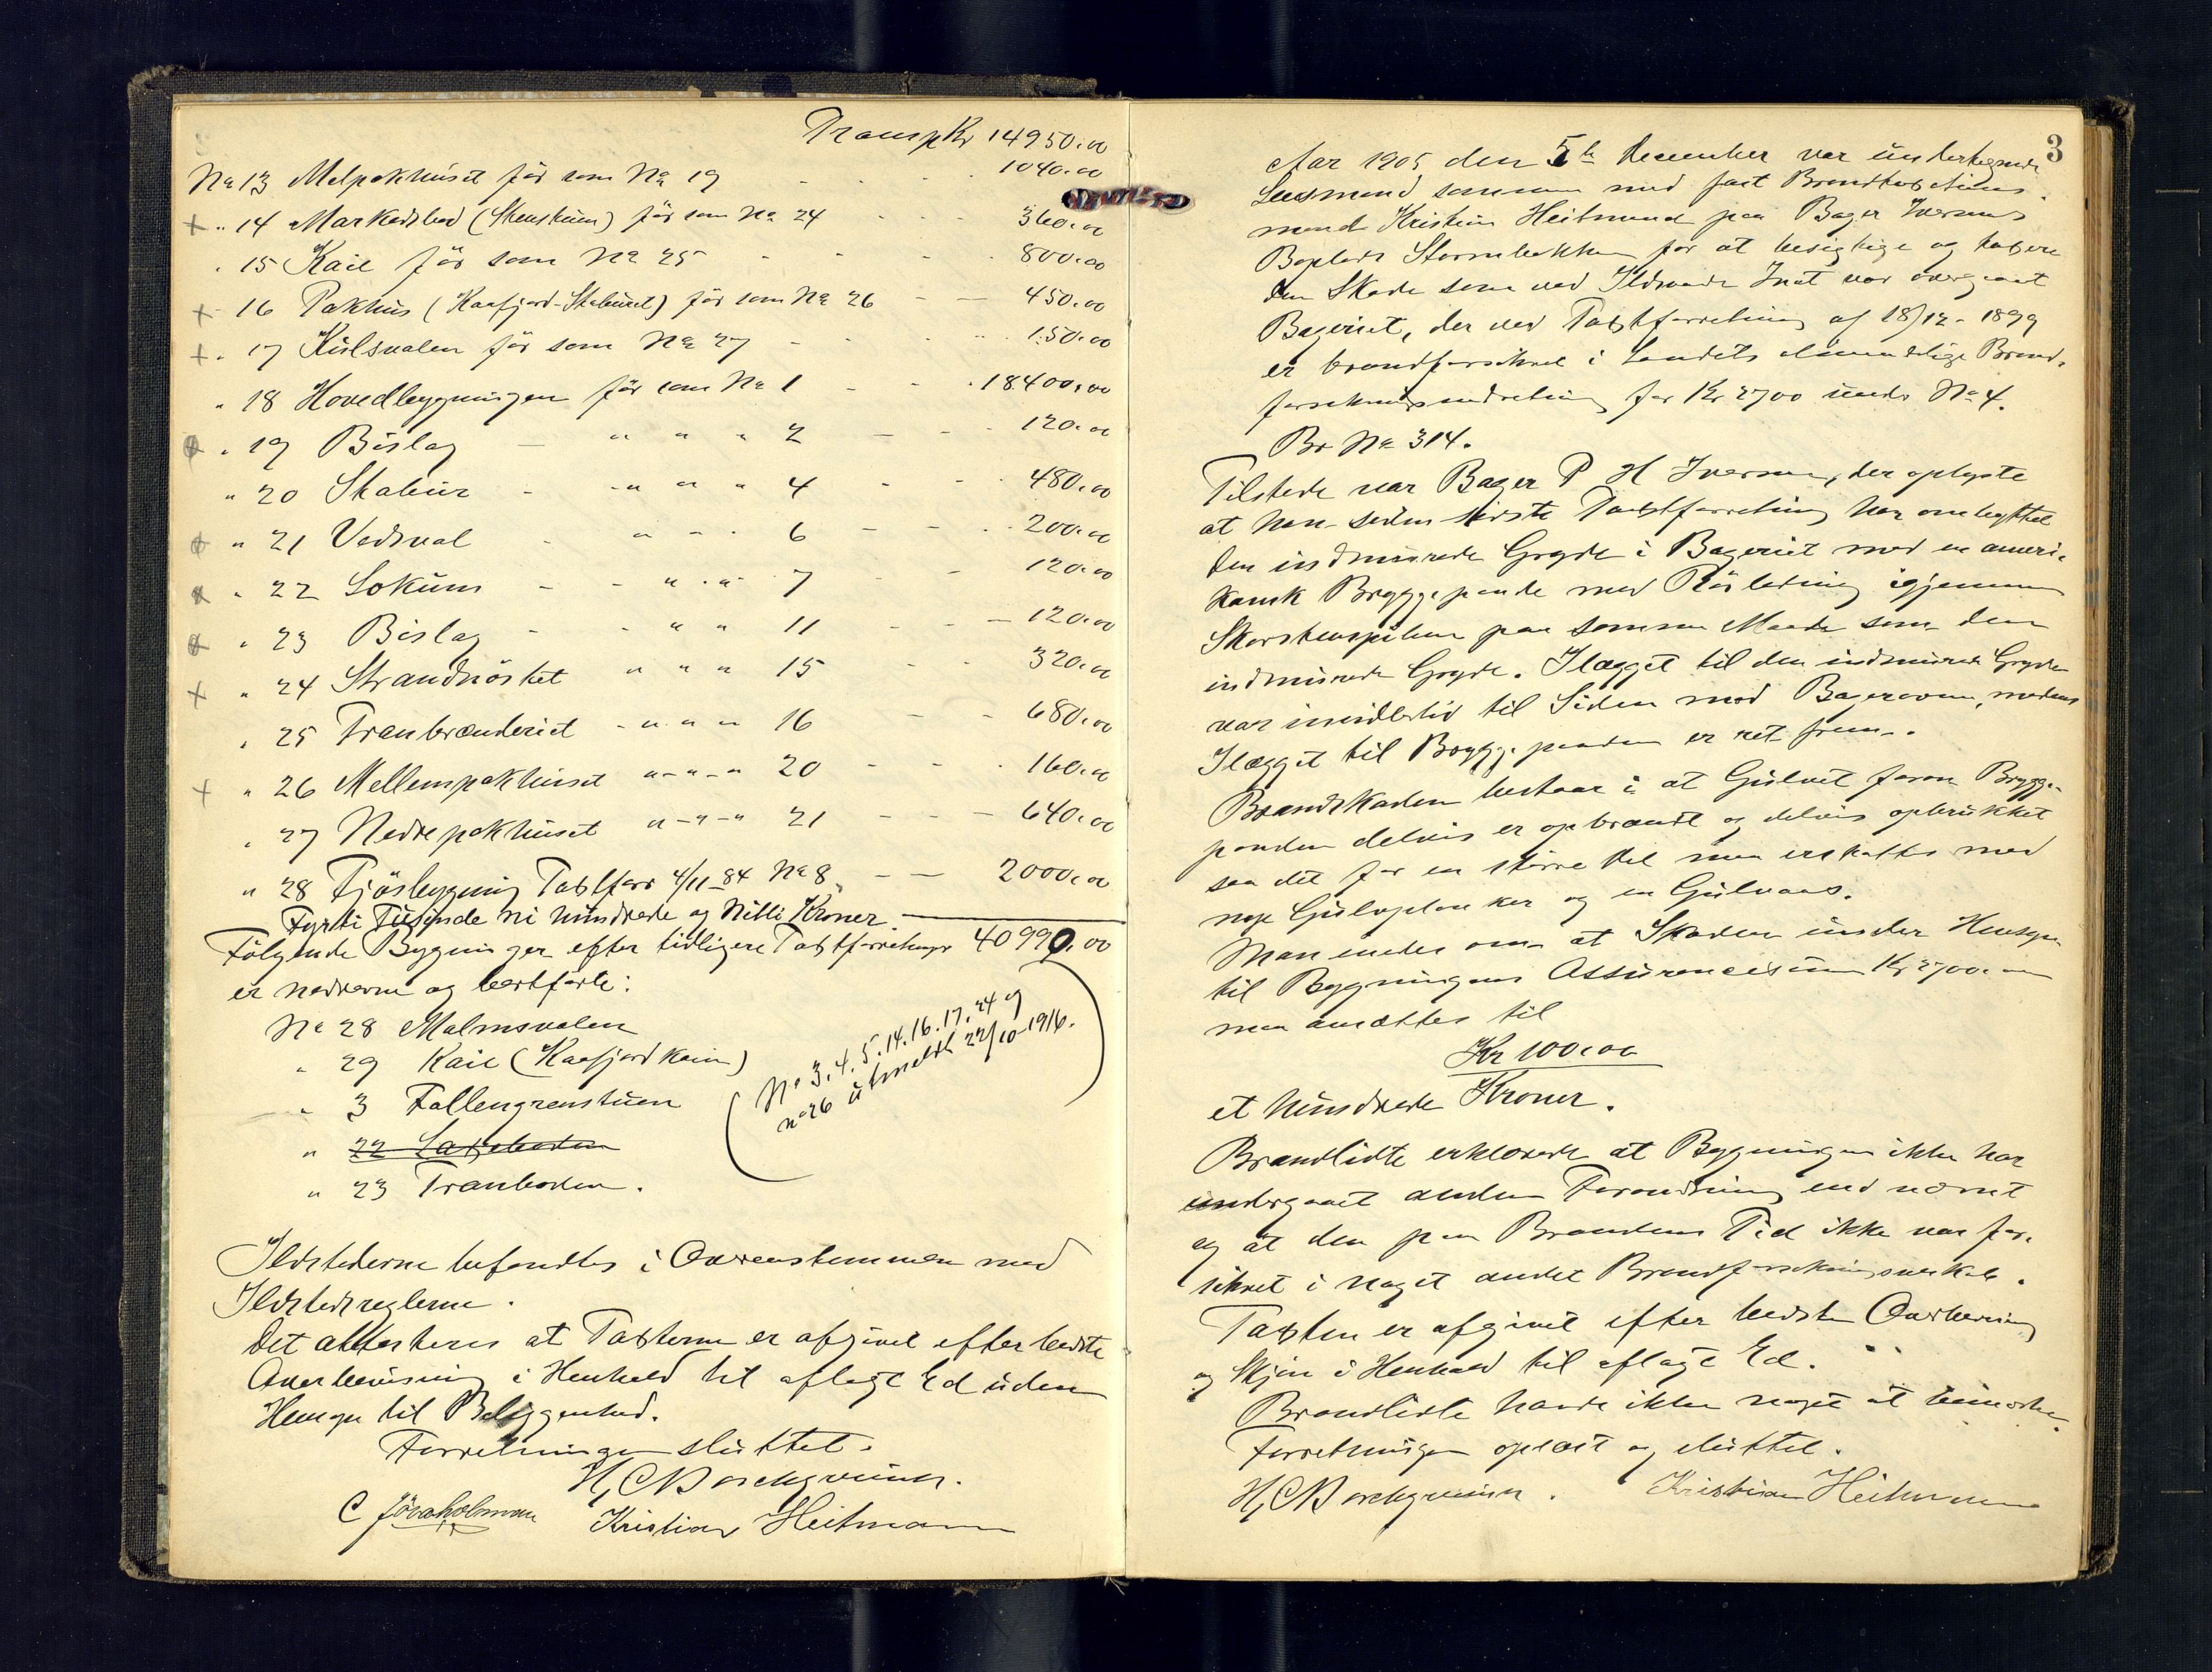 Transp Kr 14950.00
No 13 Melpakhuset før som No 19 - - - 1040.00
+ " 14 Markedsbod (Skustuen) før som No 24 - - - 360.00
" 15 Kaie før som No 25 - - - 800.00
+ " 16 Pakhus (Kaafjord-Staburet) før som No 26 - - 450.00
+ " 17 Kulsvalen før som No 27 - - - 150.00
" 18 Hovedbygningen før som No 1 - - 18400.00
" 19 Bislag - " " " 2 - - 120.00
" 20 Stabur - " " " 4 - - 480.00
" 21 Vedsval - " " " 6 - - 200.00
" 22 Lokum - - " " 7 - - 120.00
" 23 Bislag - - " " 11 - - 120.00
+ " 24 Strandnøstet " " " 15 - - 320.00
" 25 Tranbrænderiet - " " " 16 - - 680.00
+ " 26 Mellempakhuset " - " - " 20 - - 160.00
" 27 Nedrepakhuset " - " - " 21 - - - 640.00
" 28 Fjøsbygning Taxtforr 4/11-84 No 8 - - 2000.00
Fyrti Tusinde ni hundrede og Nitti Kroner
Følgende Bygninger efter tidligere Taxtforretninger 40990.00
er nedrevne og bortførte:
No 28 Malmsvalen
" 29 Kaie (Kaafjordkaien)
" 3 Fallengrenstuen
" 22 Laxeboden
" 23 Tranboden.
(No 3. 4. 5. 14. 16. 17. 24 og
no 26 utmeldt 22/10-1916.)
Ildstederne befandtes i Overenstemmen med
Ildstedsreglerne.
Det attesteres at Taxterne er afgivet efter bedste
Overbevisning i Henhold til aflagt Ed uden
Hensyn til Beliggenhed.
Forretningen sluttet.
H, C Borchgrevink.
C Kristian Heitmann
3
Aar 1905 den 5te December var undertegnede
Lensmand sammen med fast Brandtaxations
mand Kristian Heitmand paa Bager Iversens
Boplads for at besigtige og taxere
den Skade som ved Ildsvaade Inat var overgaaet
Bageriet, der ved Taxtforretning af 18/12-1899
er brandforsikret i Landets almindelige Brand-
forsikringsindretning for Kr 2700 under No 4.
Br No 314.
Tilstede var Bager P H Iversen, der oplyste
at han siden sidste Taxtforretning har ombyttet
den indmurede Gryde i Bageriet med en ameri-
kansk Bryggepande med Rørledning igjennem
Skorstenspiben paa samme Maade som den
indmurede Gryde. Ilægget til den indmurede Gryde
var imidlertid til Siden mod Bagerovnen, medens
Ilægget til Bryggepanden er ret frem.
Brandskaden bestaar i at Gulvet foran Brygge-
panden delvis er opbrændt og delvis opbrukket
saa det for en større Del maa erstattes med
nye Gulvplanker og en Gulvaas.
Man enedes om at Skaden under Hensyn
til Bygningens Assurancesum Kr 2700.00
maa ansættes til
Kr 100.00
et hundrede Kroner.
Brandlidte erklærede at Bygningen ikke har
undergaaet anden Forandring end nævnt
og at den paa Brandens Tid ikke var for-
sikret i noget andet Brandforsikringsselskab.
Taxten er afgivet efter bedste Overbevisning
og Skjøn i Henhold til aflagt Ed.
Brandlidte havde ikke noget at bemærke.
Forretningen oplæst og sluttet.
H, C Borchgrevink. Kristian Heitmann